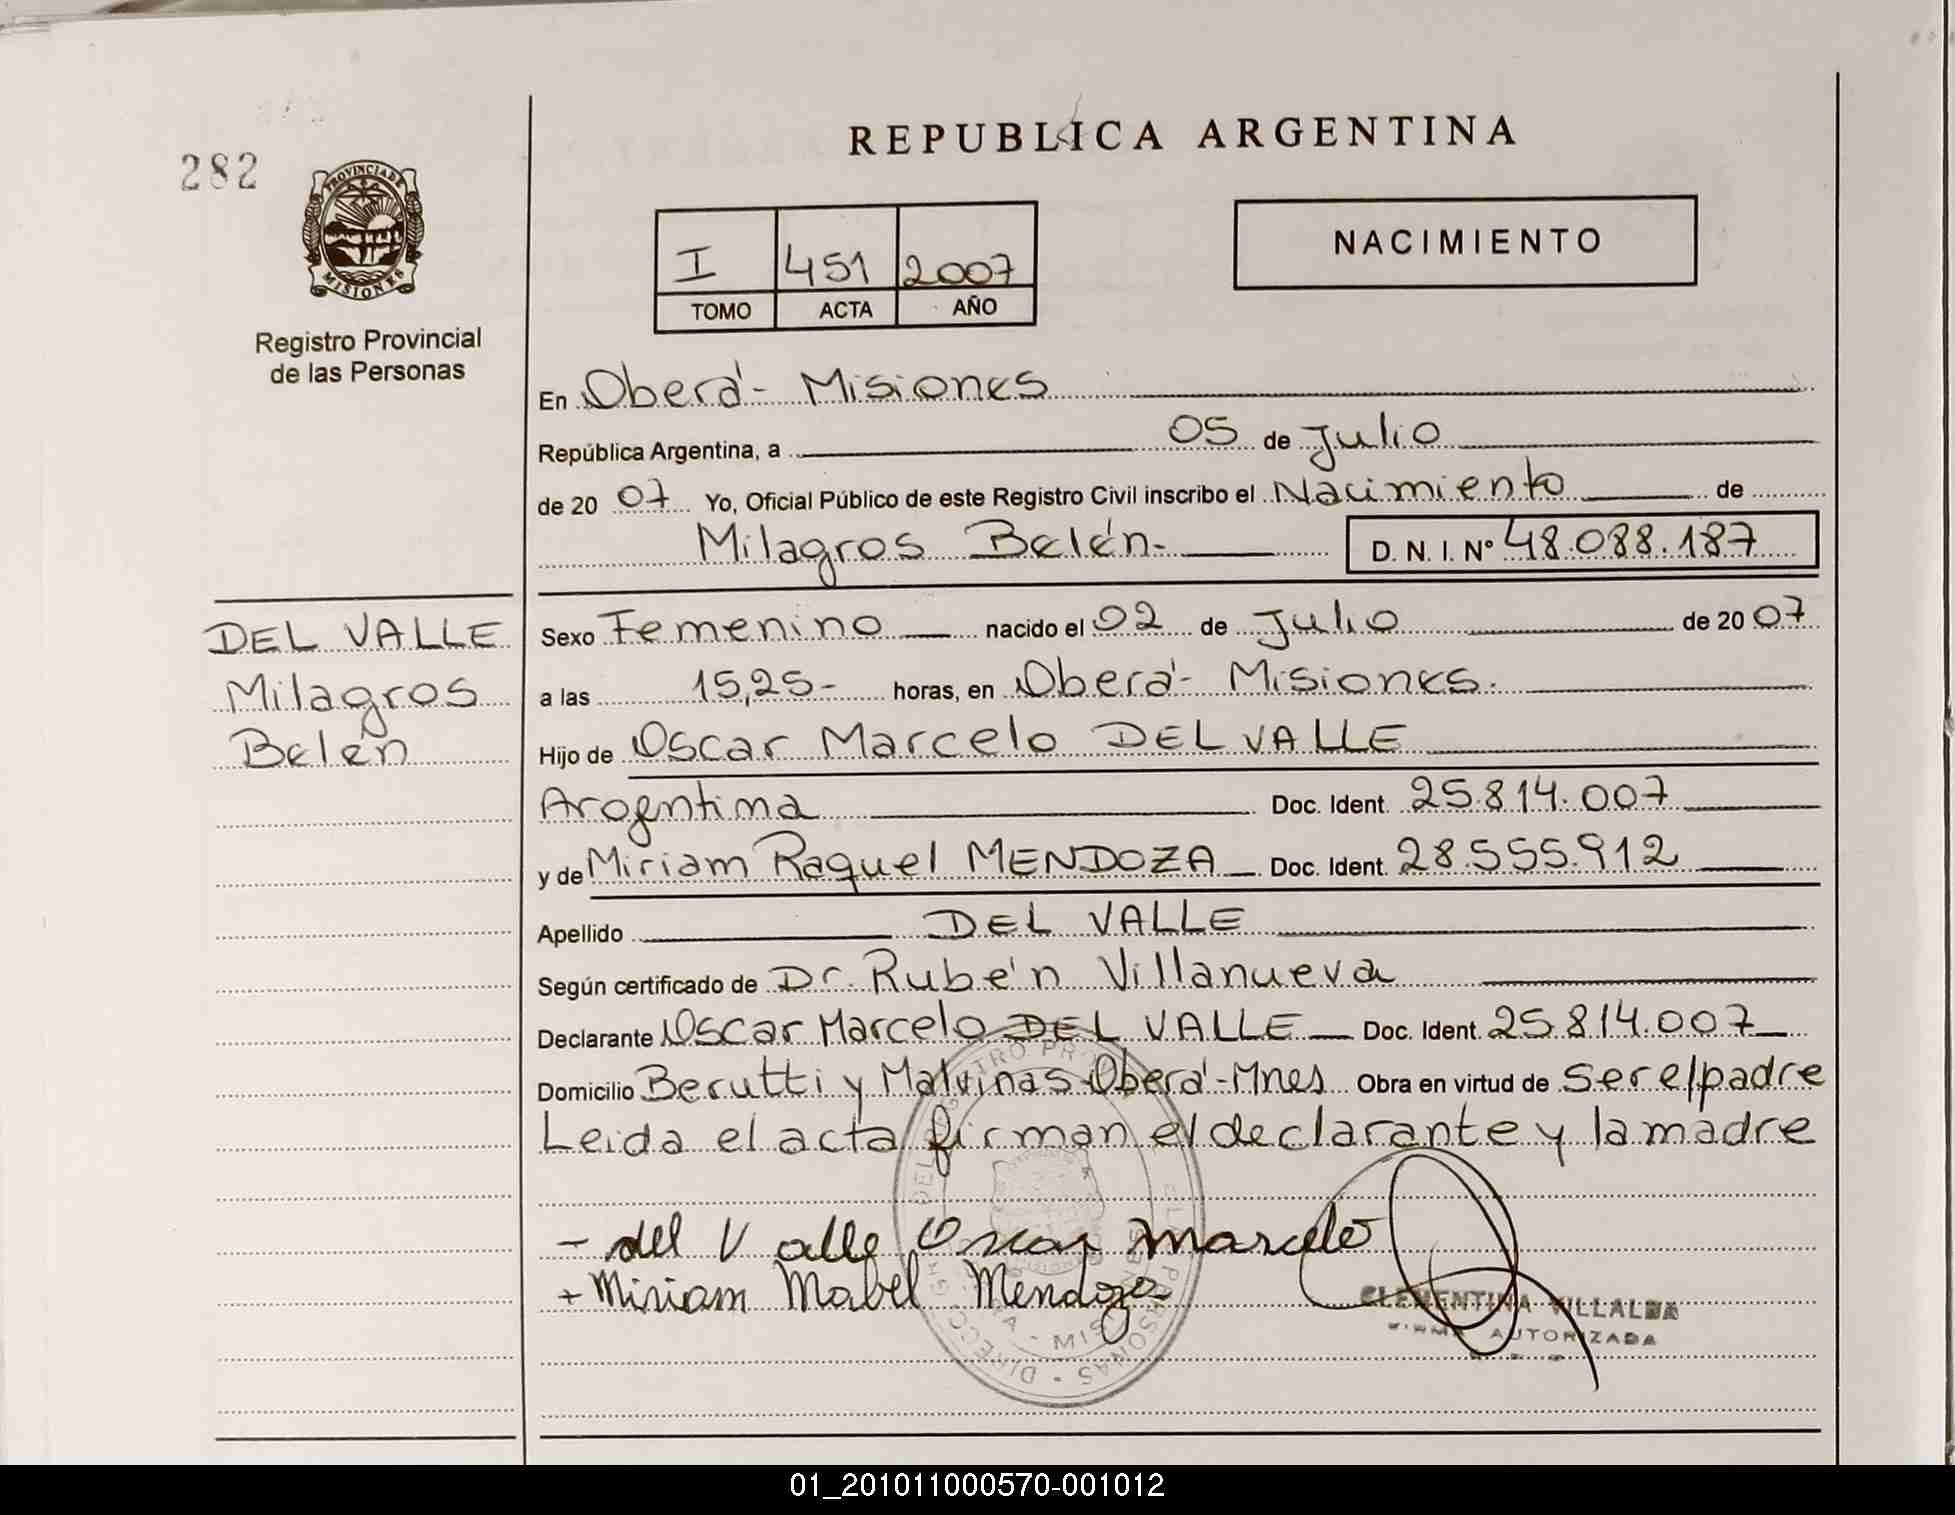 282
PROVINCIA DE
MISIONES
Registro Provincial
de las Personas
REPUBLICA ARGENTINA
I 451 2007
TOMO ACTA AÑO
NACIMIENTO
En Oberá- Misiones
República Argentina, a 05 de Julio
de 20 07 Yo, Oficial Público de este Registro Civil inscribo el Nacimiento de
Milagros Belén- D. N. I. N° 48.088.187
DEL VALLE
Milagros
Belén
Sexo Femenino nacido el 02 de Julio de 20 07
a las 15,25- horas, en Oberá- Misiones.
Hijo de Oscar Marcelo DEL VALLE
Argentina Doc. Ident. 25.814.007
y de Miriam Raquel MENDOZA Doc. Ident. 28.555.912
Apellido DEL VALLE
Según certificado de Dr. Rubén Villanueva
Declarante Oscar Marcelo DEL VALLE Doc. Ident. 25.814.007
Domicilio Berutti y Malvinas-Oberá-Mnes Obra en virtud de ser el padre
Leida el acta firman el declarante y la madre
- del Valle Oscar Marcelo
+ Miriam Mabel Mendoza
CLEMENTINA VILLALBA
FIRMA AUTORIZADA
01_201011000570-001012